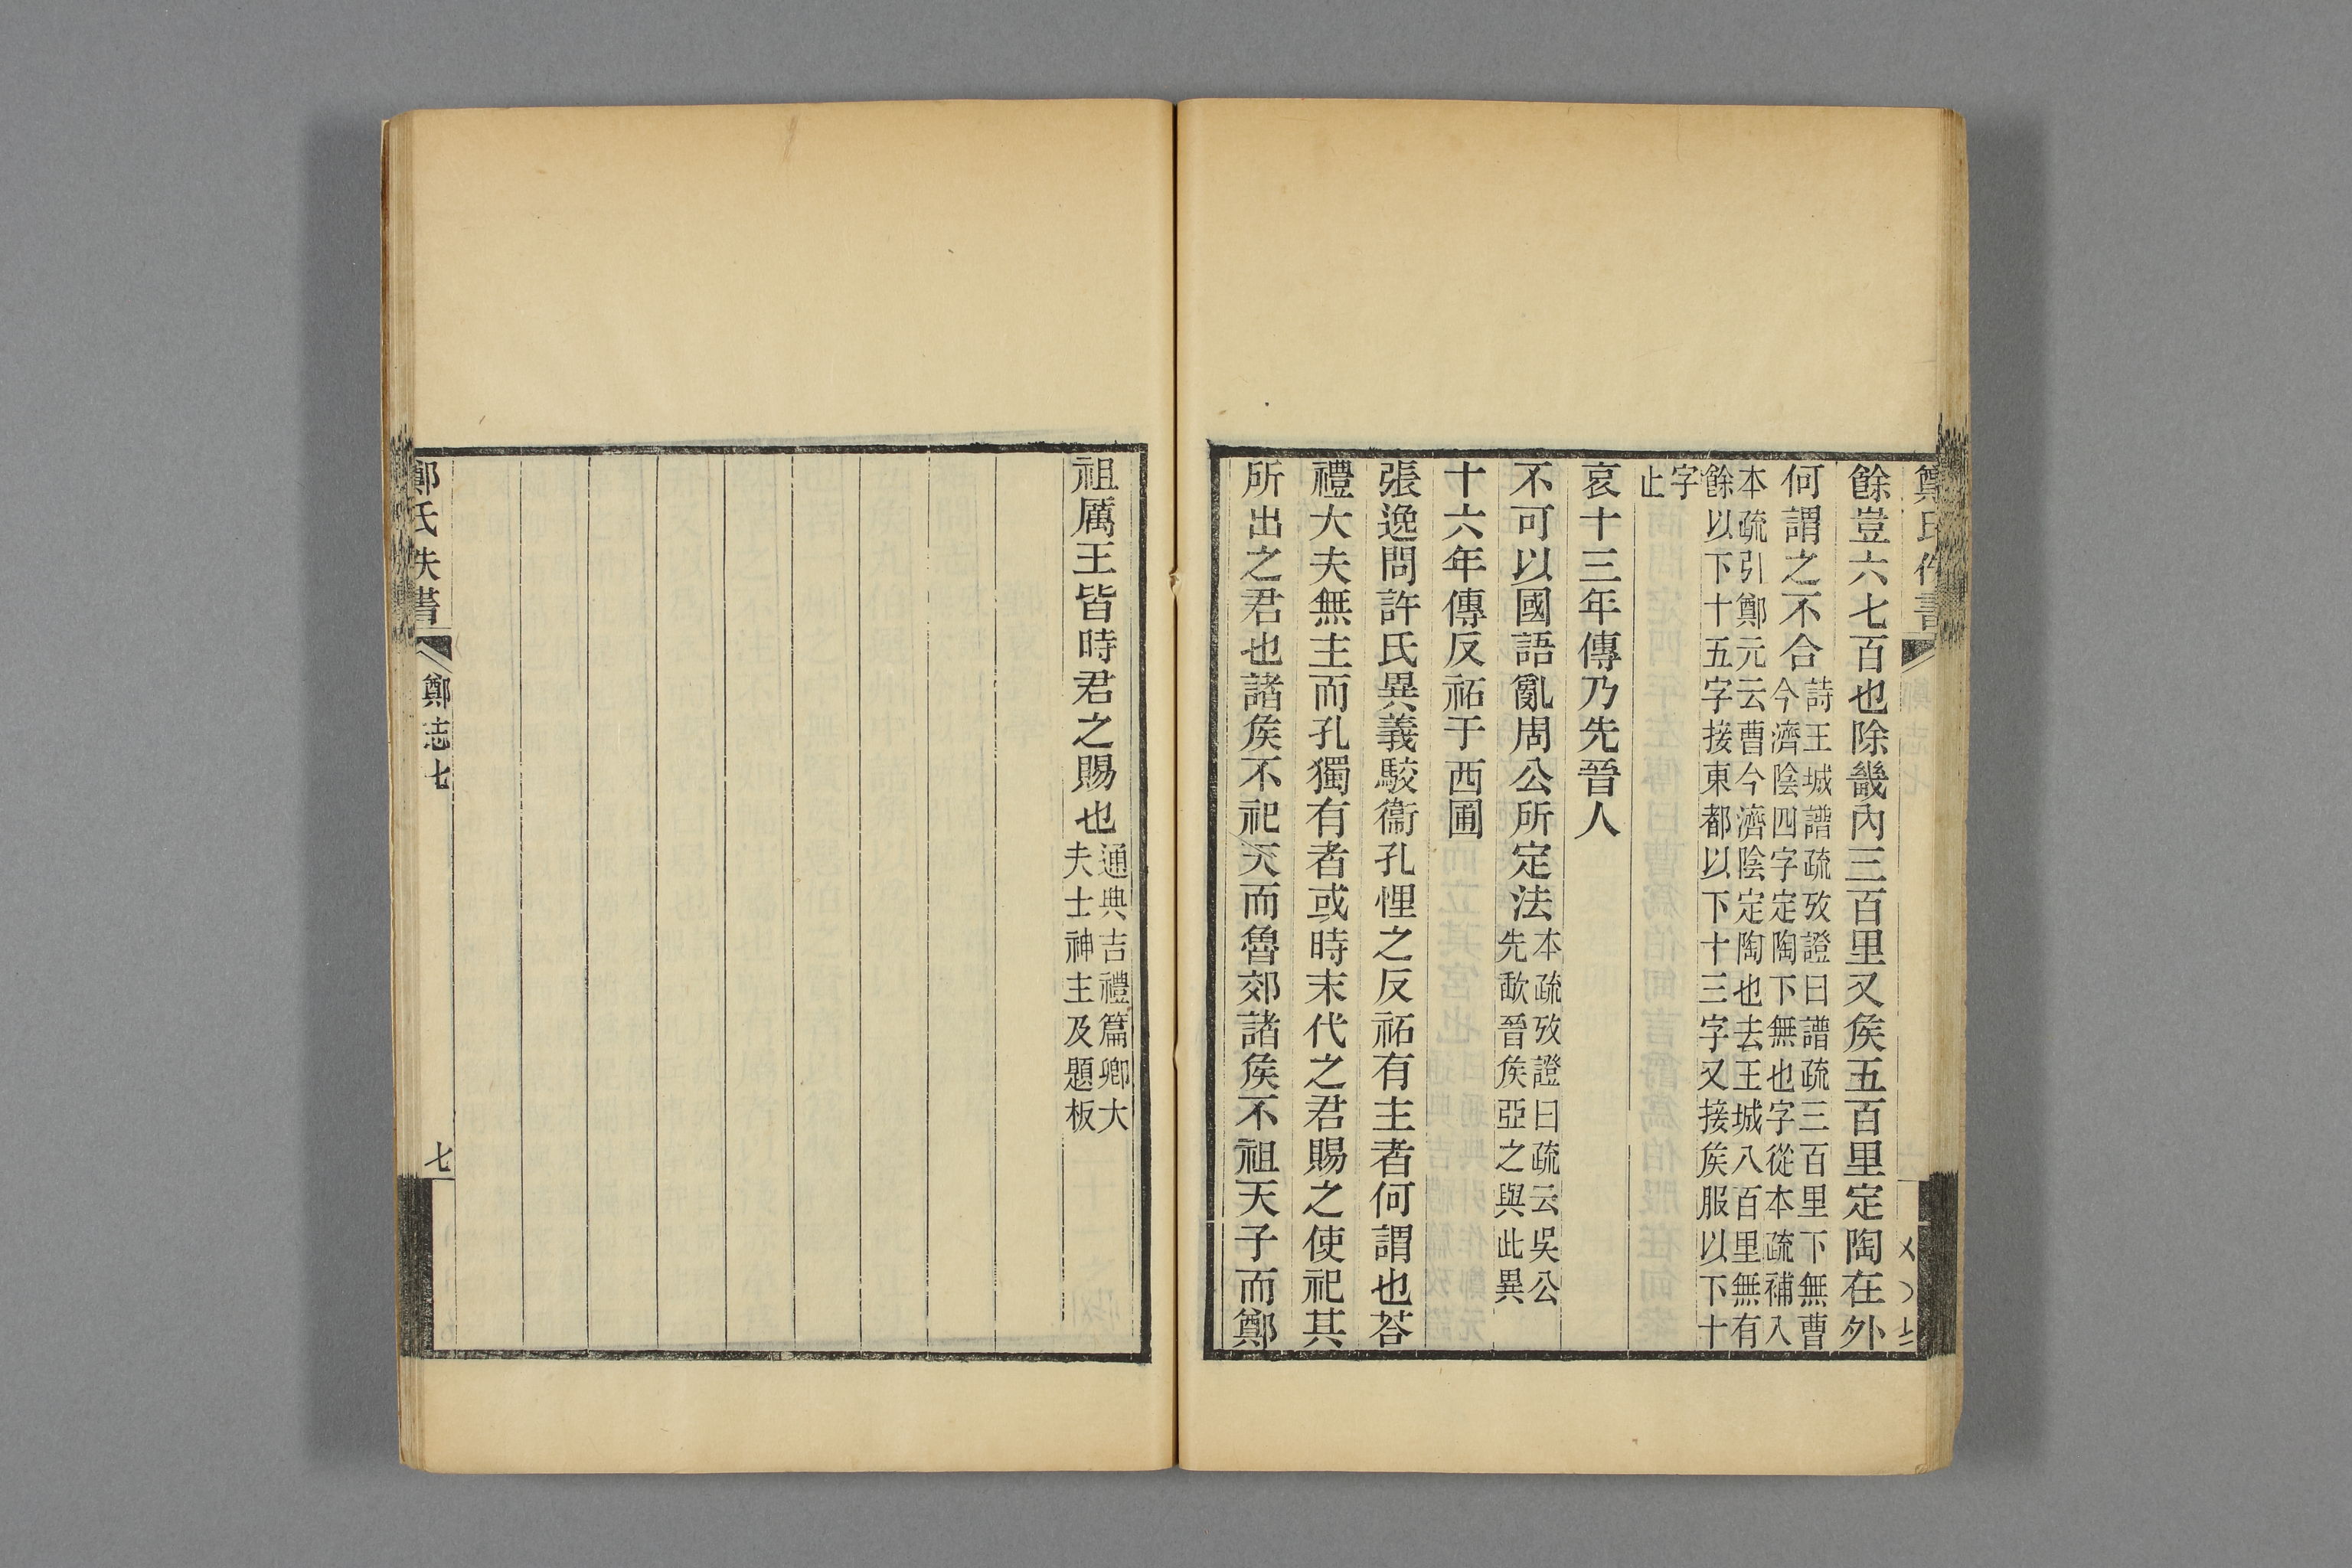 餘豈六七百也除畿內三百里又矦五百里定陶在外
何謂之不合
詩王城譜疏攷證曰譜疏三百里下無曹
今濟陰四字定陶下無也字從本疏補入
本疏引鄭元云曹今濟陰定陶也去王城八百里無有
餘以下十五字接東都以下十三字又接矦服以下十
字
止
哀十三年傳乃先晉人
不可以國語亂周公所定法
本疏攷證曰疏云吳公
先歃晉矦亞之與此異
十六年傳反祏于西圃
張逸問許氏異義駮衞孔悝之反祏有主者何謂也荅
禮大夫無主而孔獨有者或時末代之君賜之使祀其
所出之君也諸矦不祀天而魯郊諸矦不祖天子而鄭
祖厲王皆時君之賜也
通典吉禮篇卿大
夫士神主及題板
鄭氏佚書
鄭志七
七